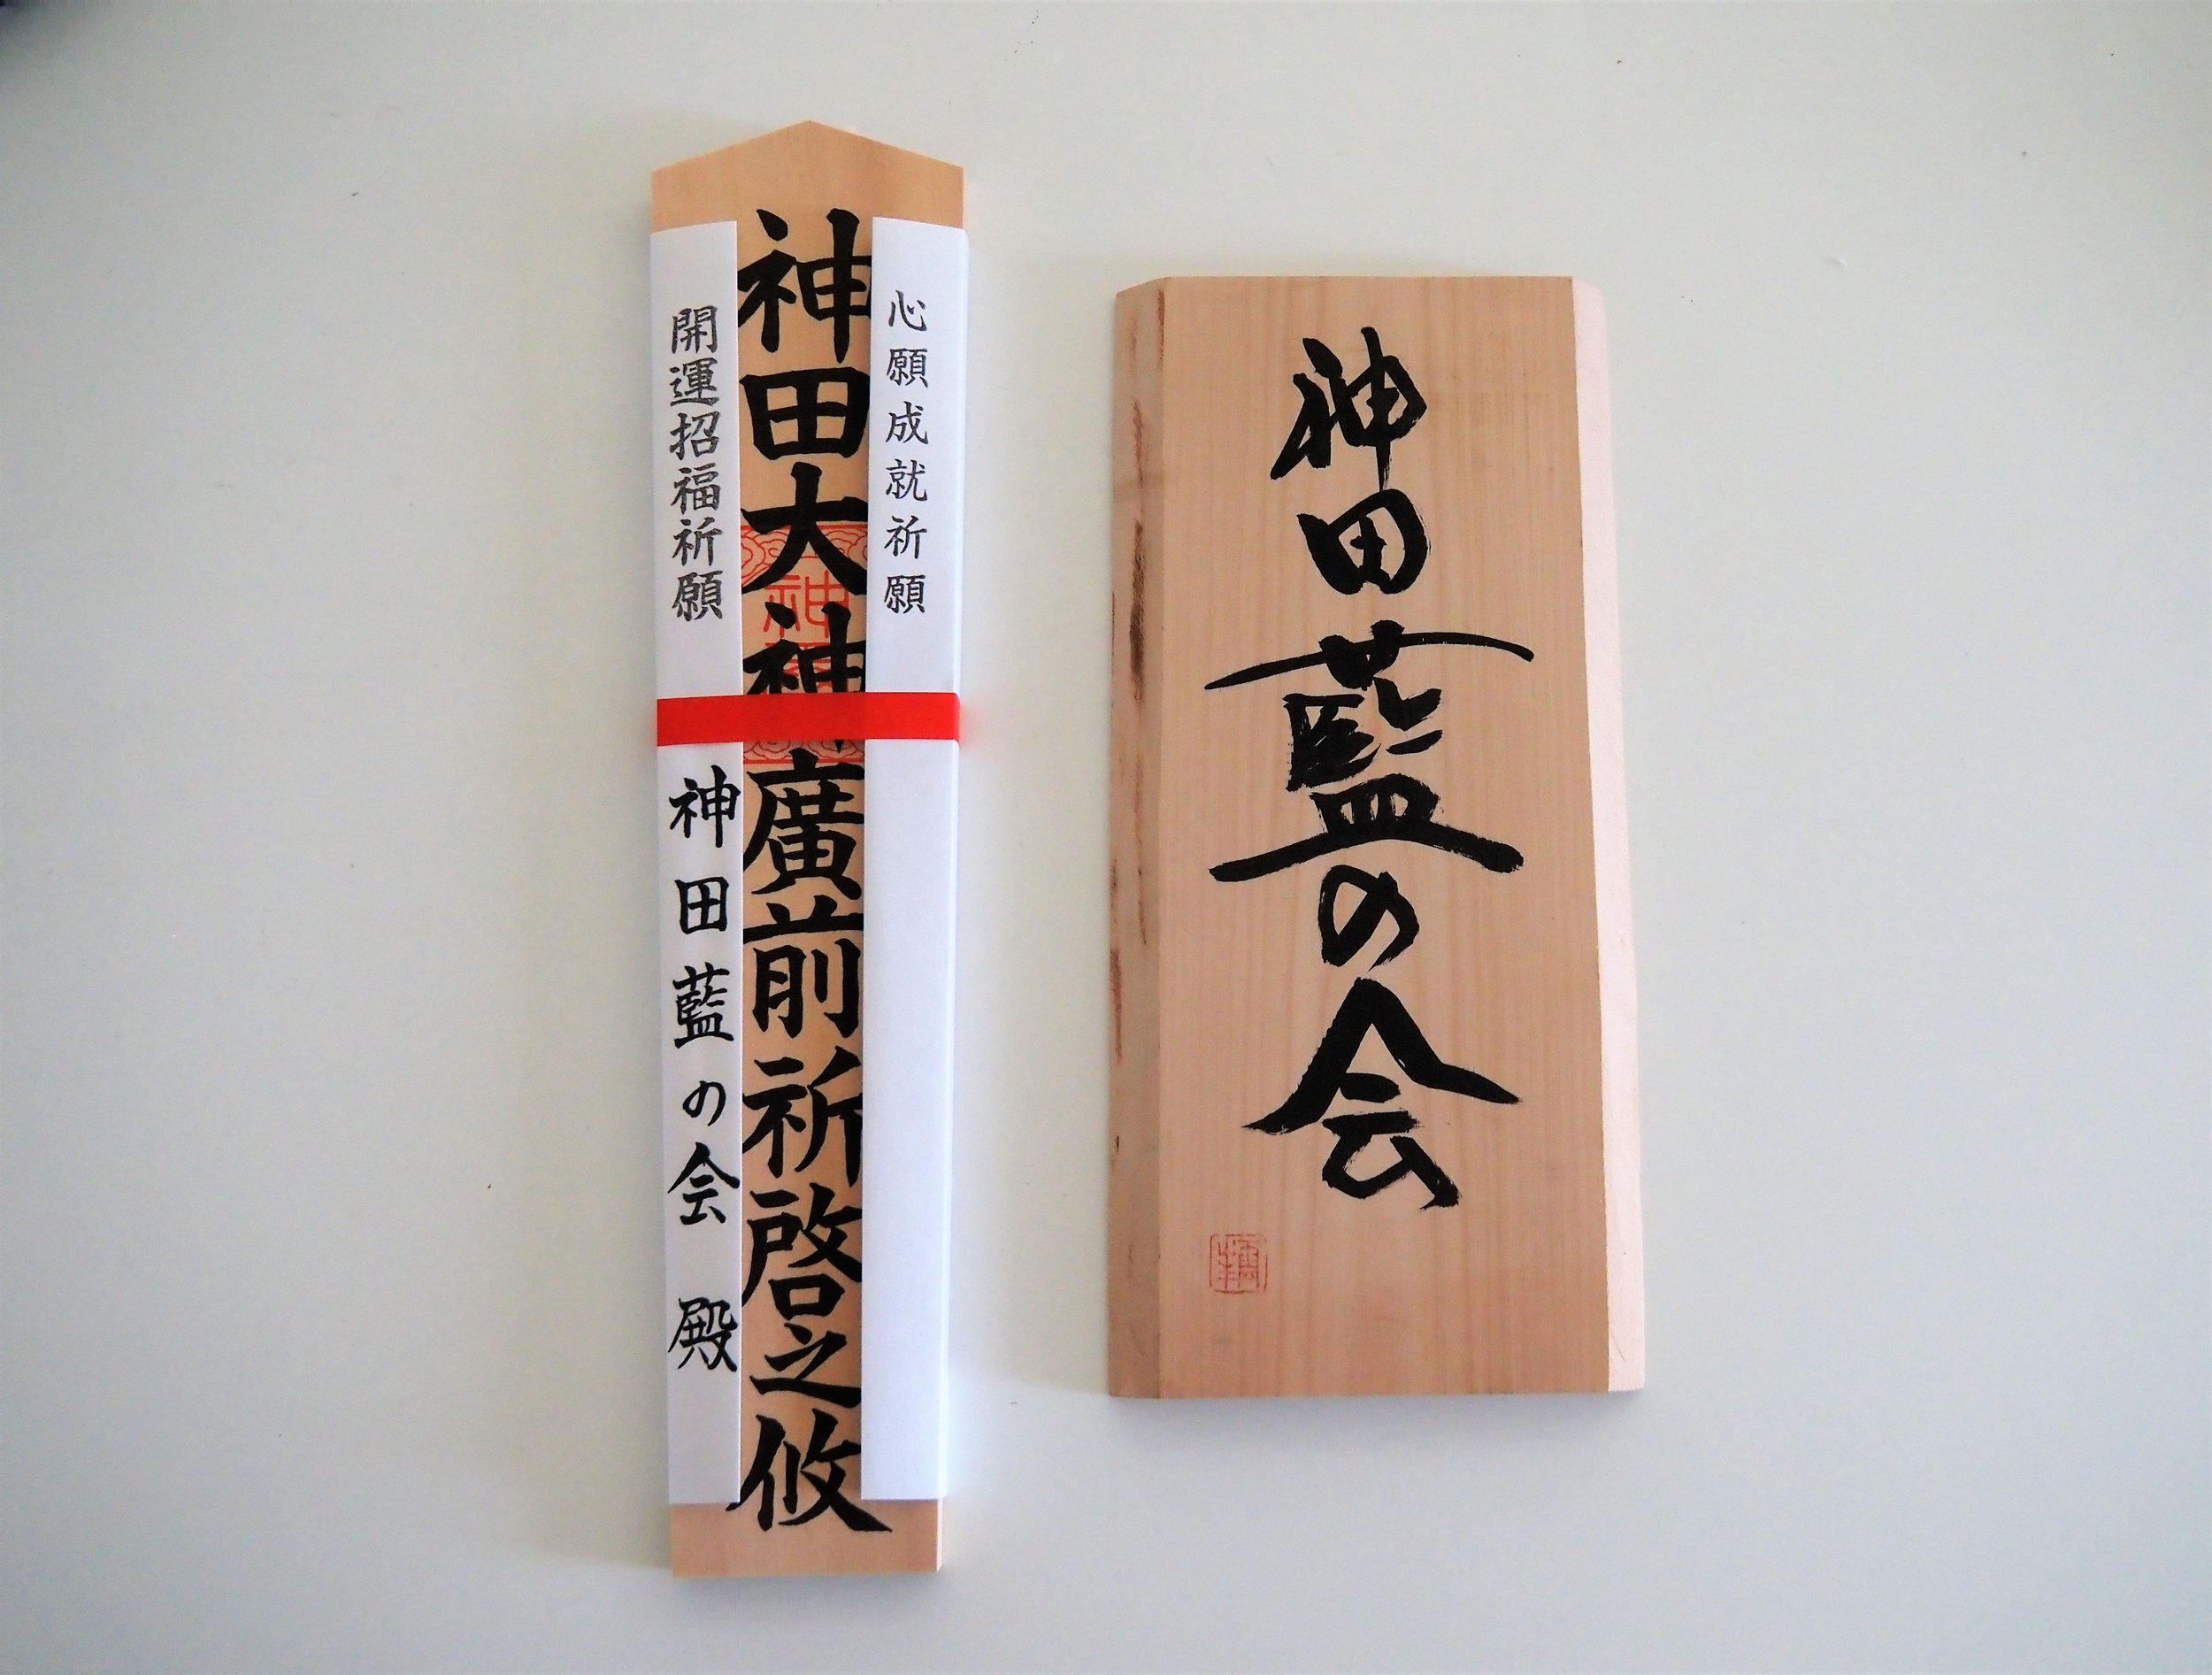 心願成就祈願
神田大神廣前祈啓之攸
開運招福祈願
神田藍の会 殿
神田藍の会